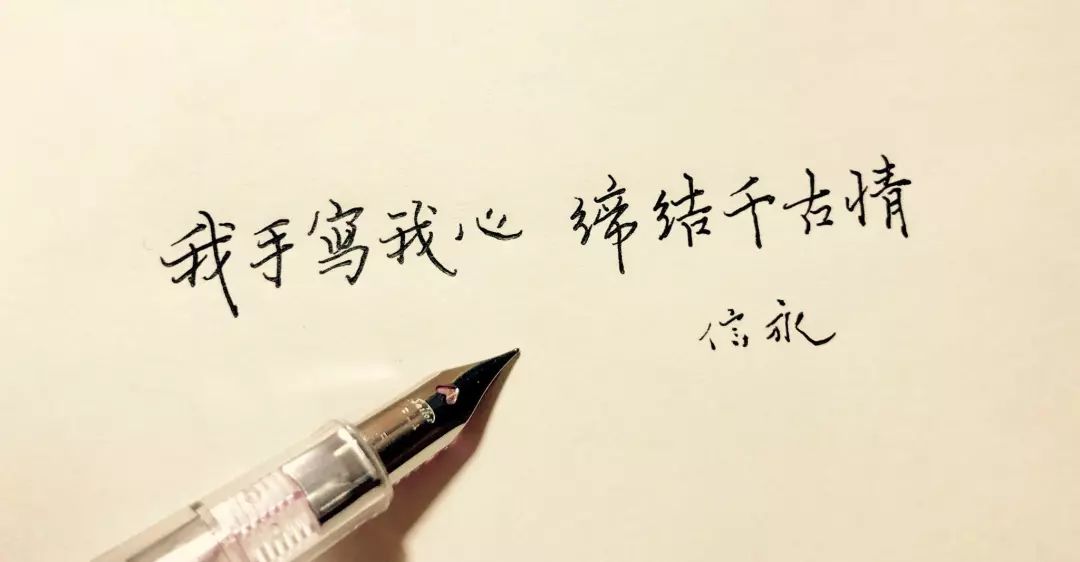 我手写我心 缔结千古情
信永
Sailor